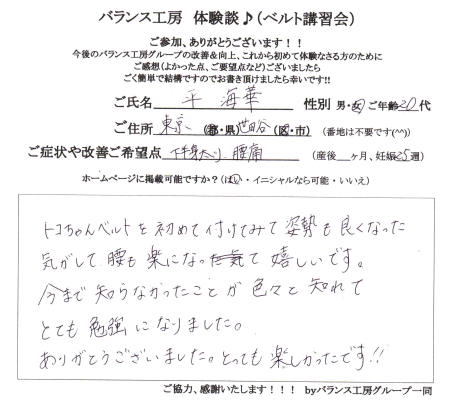 バランス工房 体験談♪(ベルト講習会)
ご参加、ありがとうございます！！
今後のバランス工房グループの改善&向上、これから初めて体験なさる方のために
ご感想(よかった点、ご要望点など)ございましたら
ごく簡単で結構ですのでお書き頂けましたら幸いです!!
ご氏名 平 海華 性別 男・女 ご年齢 20代
ご住所 東京 (都・県) 世田谷 (区・市) (番地は不要です(^^))
ご症状や改善ご希望点 下半身太り、腰痛 (産後 ヶ月、妊娠25週)
ホームページに掲載可能ですか？(はい・イニシャルなら可能・いいえ)
トコちゃんベルトを初めて付けてみて姿勢も良くなった
気がして腰も楽になった気て嬉しいです。
今まで知らなかったことが色々と知れて
とても勉強になりました。
ありがとうございました。とっても楽しかったです!!
ご協力、感謝いたします！！！ byバランス工房グループ一同